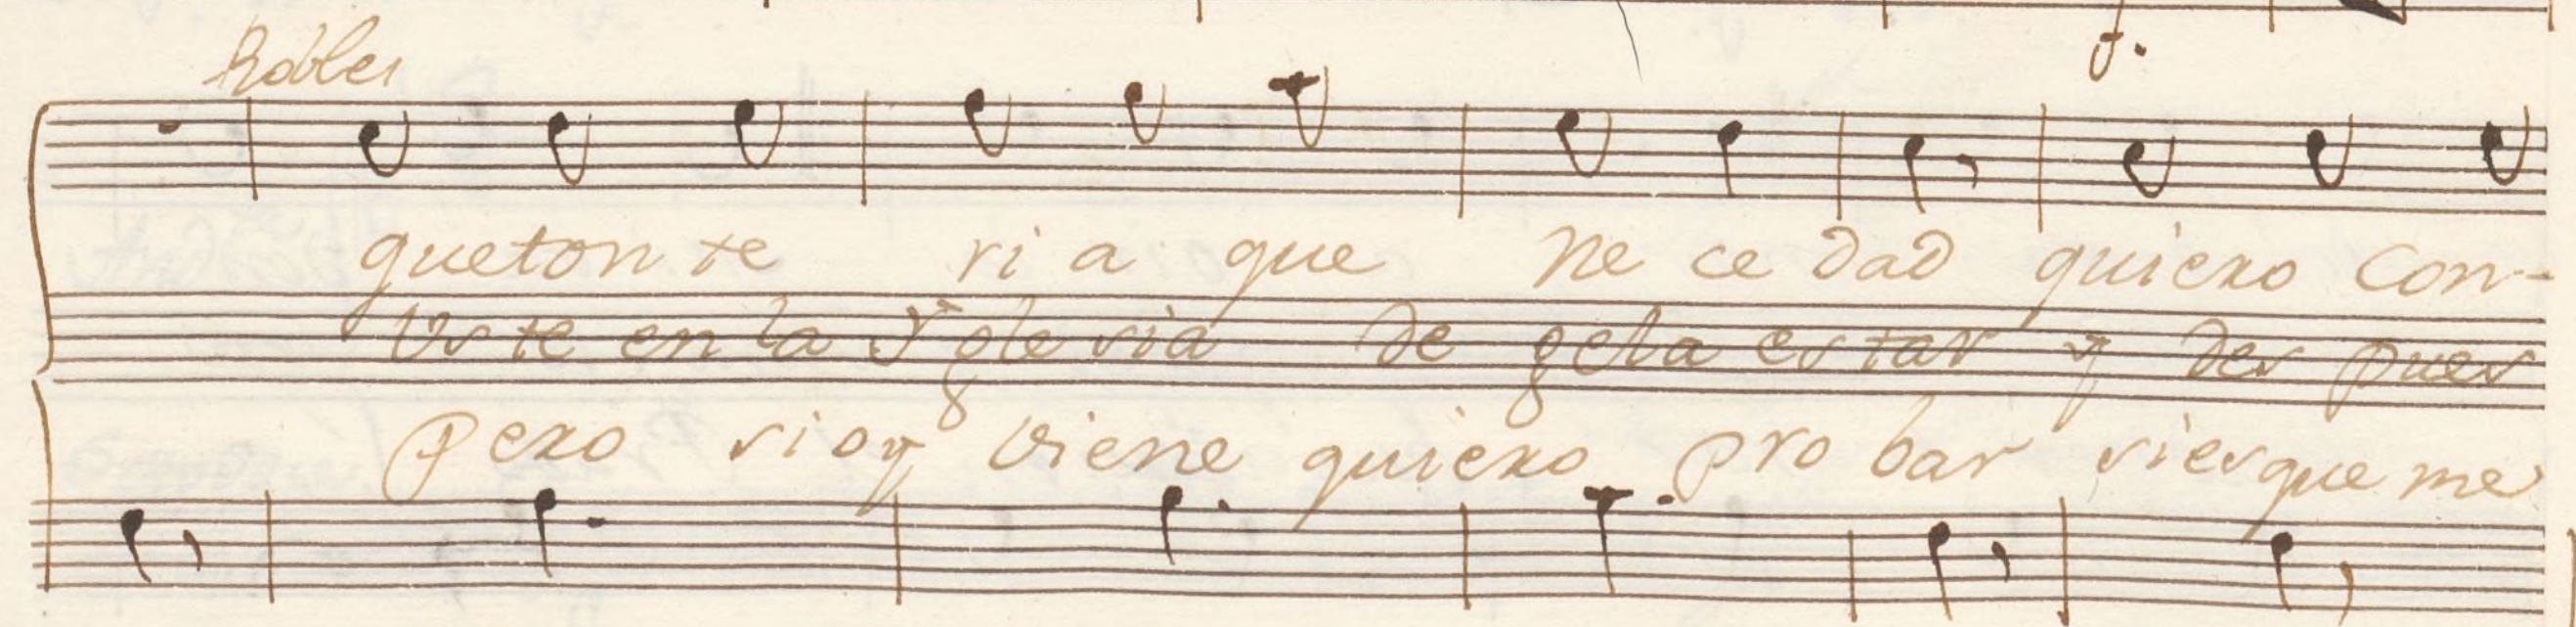 Robles
f.
que ton te ri a que ne ce dad quiero con-
Vs te en la Yglesia de gela estar y des pues
pero si oy viene quiero pro bar si es que me